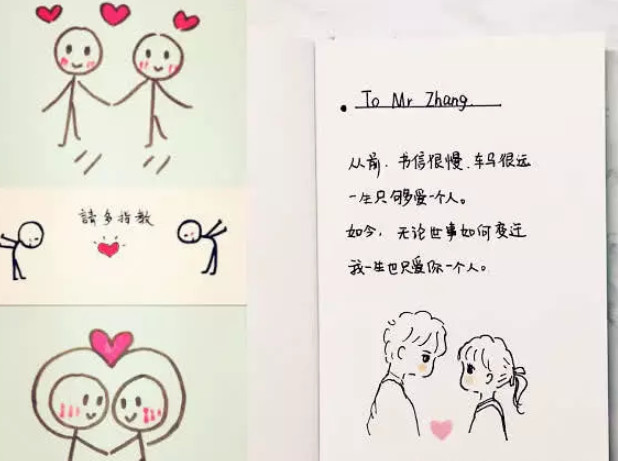 請多指教
To Mr Zhang.
从前．书信很慢．车马很远
一生只够爱一个人。
如今，无论世事如何变迁
我一生也只爱你一个人。